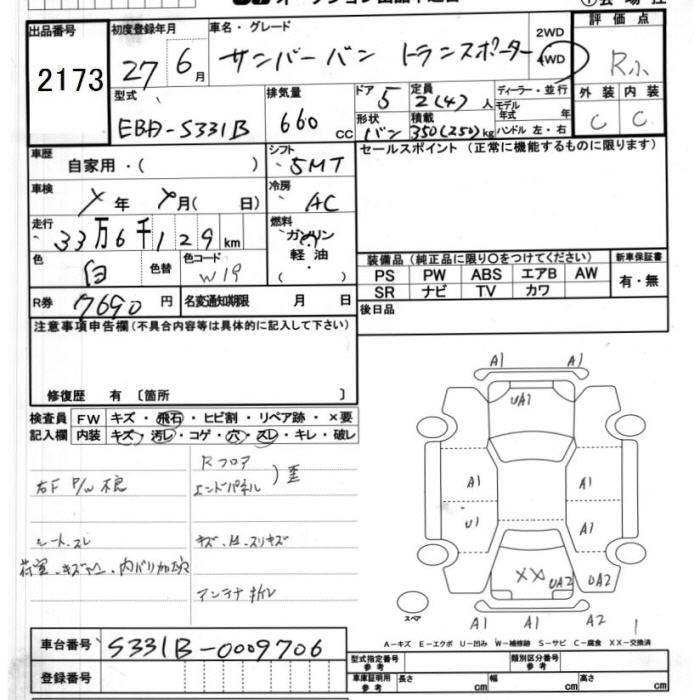 出品番号
2173
初度登録年月
27年6月
車名・グレード
サンバーバン トランスポーター
2WD
4WD
評価点
R小
型式
EBD-S331B
排気量
660 cc
ドア
5
形状
バン
定員
2(4)人
積載
350(250)kg
ディーラー・並行
モデル年式 年
ハンドル 左・右
外装 内装
C C
車歴
自家用・( )
シフト
5MT
セールスポイント (正常に機能するものに限ります)
車検
年 月( 日)
冷房
AC
走行
33万6千129km
燃料
ガソリン
軽油
・( )
色
白
色替
色コード
W19
装備品(純正品に限り○をつけてください)
PS PW ABS エアB AW
SR ナビ TV カワ
新車保証書
有・無
R券
7690円
名変通知期限 月 日
後日品
注意事項申告欄(不具合内容等は具体的に記入して下さい)
修復歴 有 〔箇所 〕
検査員記入欄
FW キズ・飛石・ヒビ割・リペア跡・×要
内装 キズ・汚レ・コゲ・穴・スレ・キレ・破レ
右F P/W 不良
Rフロア
エンドパネル )歪
シート、スレ
アンテナ折レ
A1 A1
UA1
A1 A1
U1 A1
XX UA2 UA2
A1 A1 A2
スペア
A-キズ E-エクボ U-凹み W-補修跡 S-サビ C-腐食 XX-交換済
車台番号
S331B-0009706
登録番号
型式指定番号
参考
類別区分番号
参考
車庫証明用
参考
長さ cm 幅 cm 高さ cm